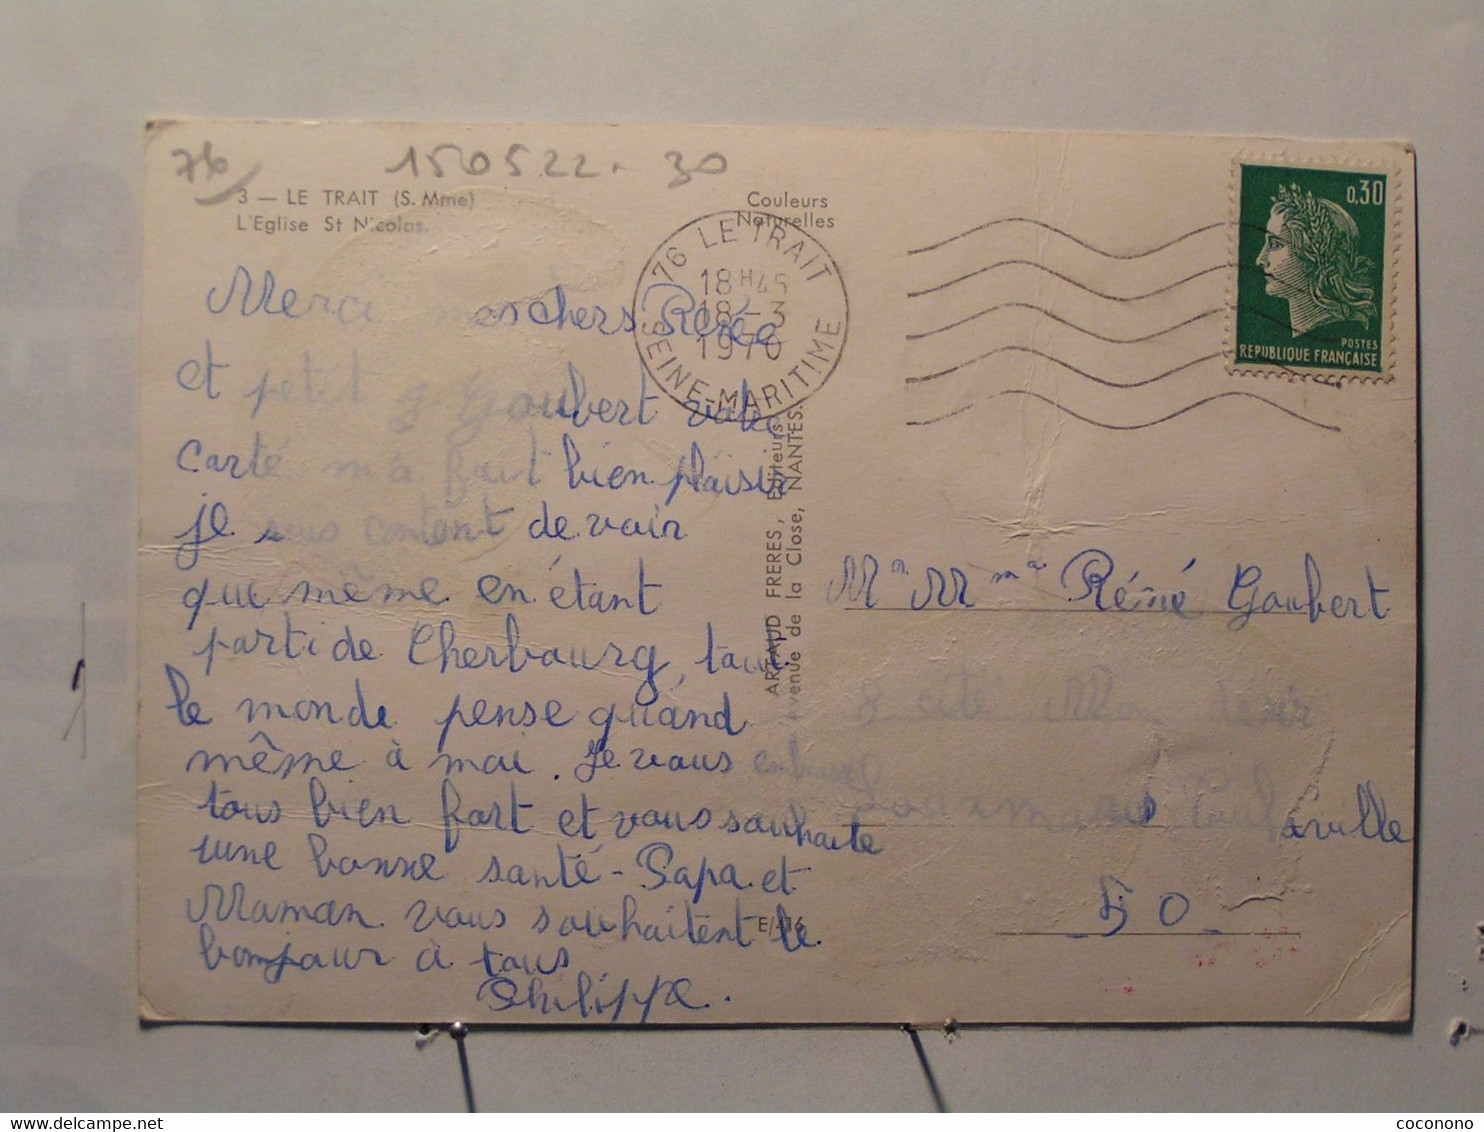 76 150522. 30
3 — LE TRAIT (S. Mme)
L'Eglise St Nicolas.
Couleurs
Naturelles
76 LE TRAIT
18H45
18-3
1970
SEINE-MARITIME
0,30
POSTES
REPUBLIQUE FRANÇAISE
Merci mes chers Réné
et petit Goubert votre
carté m'a fait bien pläisir
je suis contant de voir
que même en étant
parti de Cherbourg, tout
le monde pense quand
même à moi. Je vous embrasse
tous bien fort et vous souhaite
une bonne santé - Papa et
Maman vous souhaitent le
bonjour à tous
Philippe.
ARTAUD FRERES, Editeurs
Avenue de la Close, NANTES.
E/416
Mr Mme Réné Goubert
8 cité Mon désir
aville
50
1
coconono